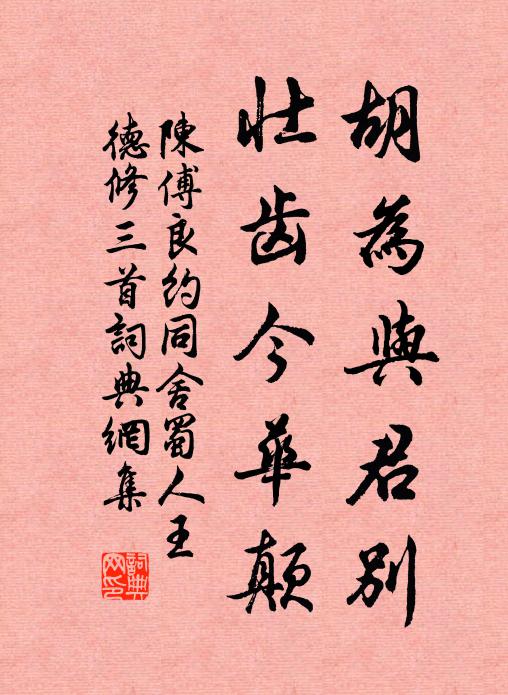 胡為與君別
壮齿今華顛
陳傅良約同舍蜀人王
德修三首詞典網集
詞典网印